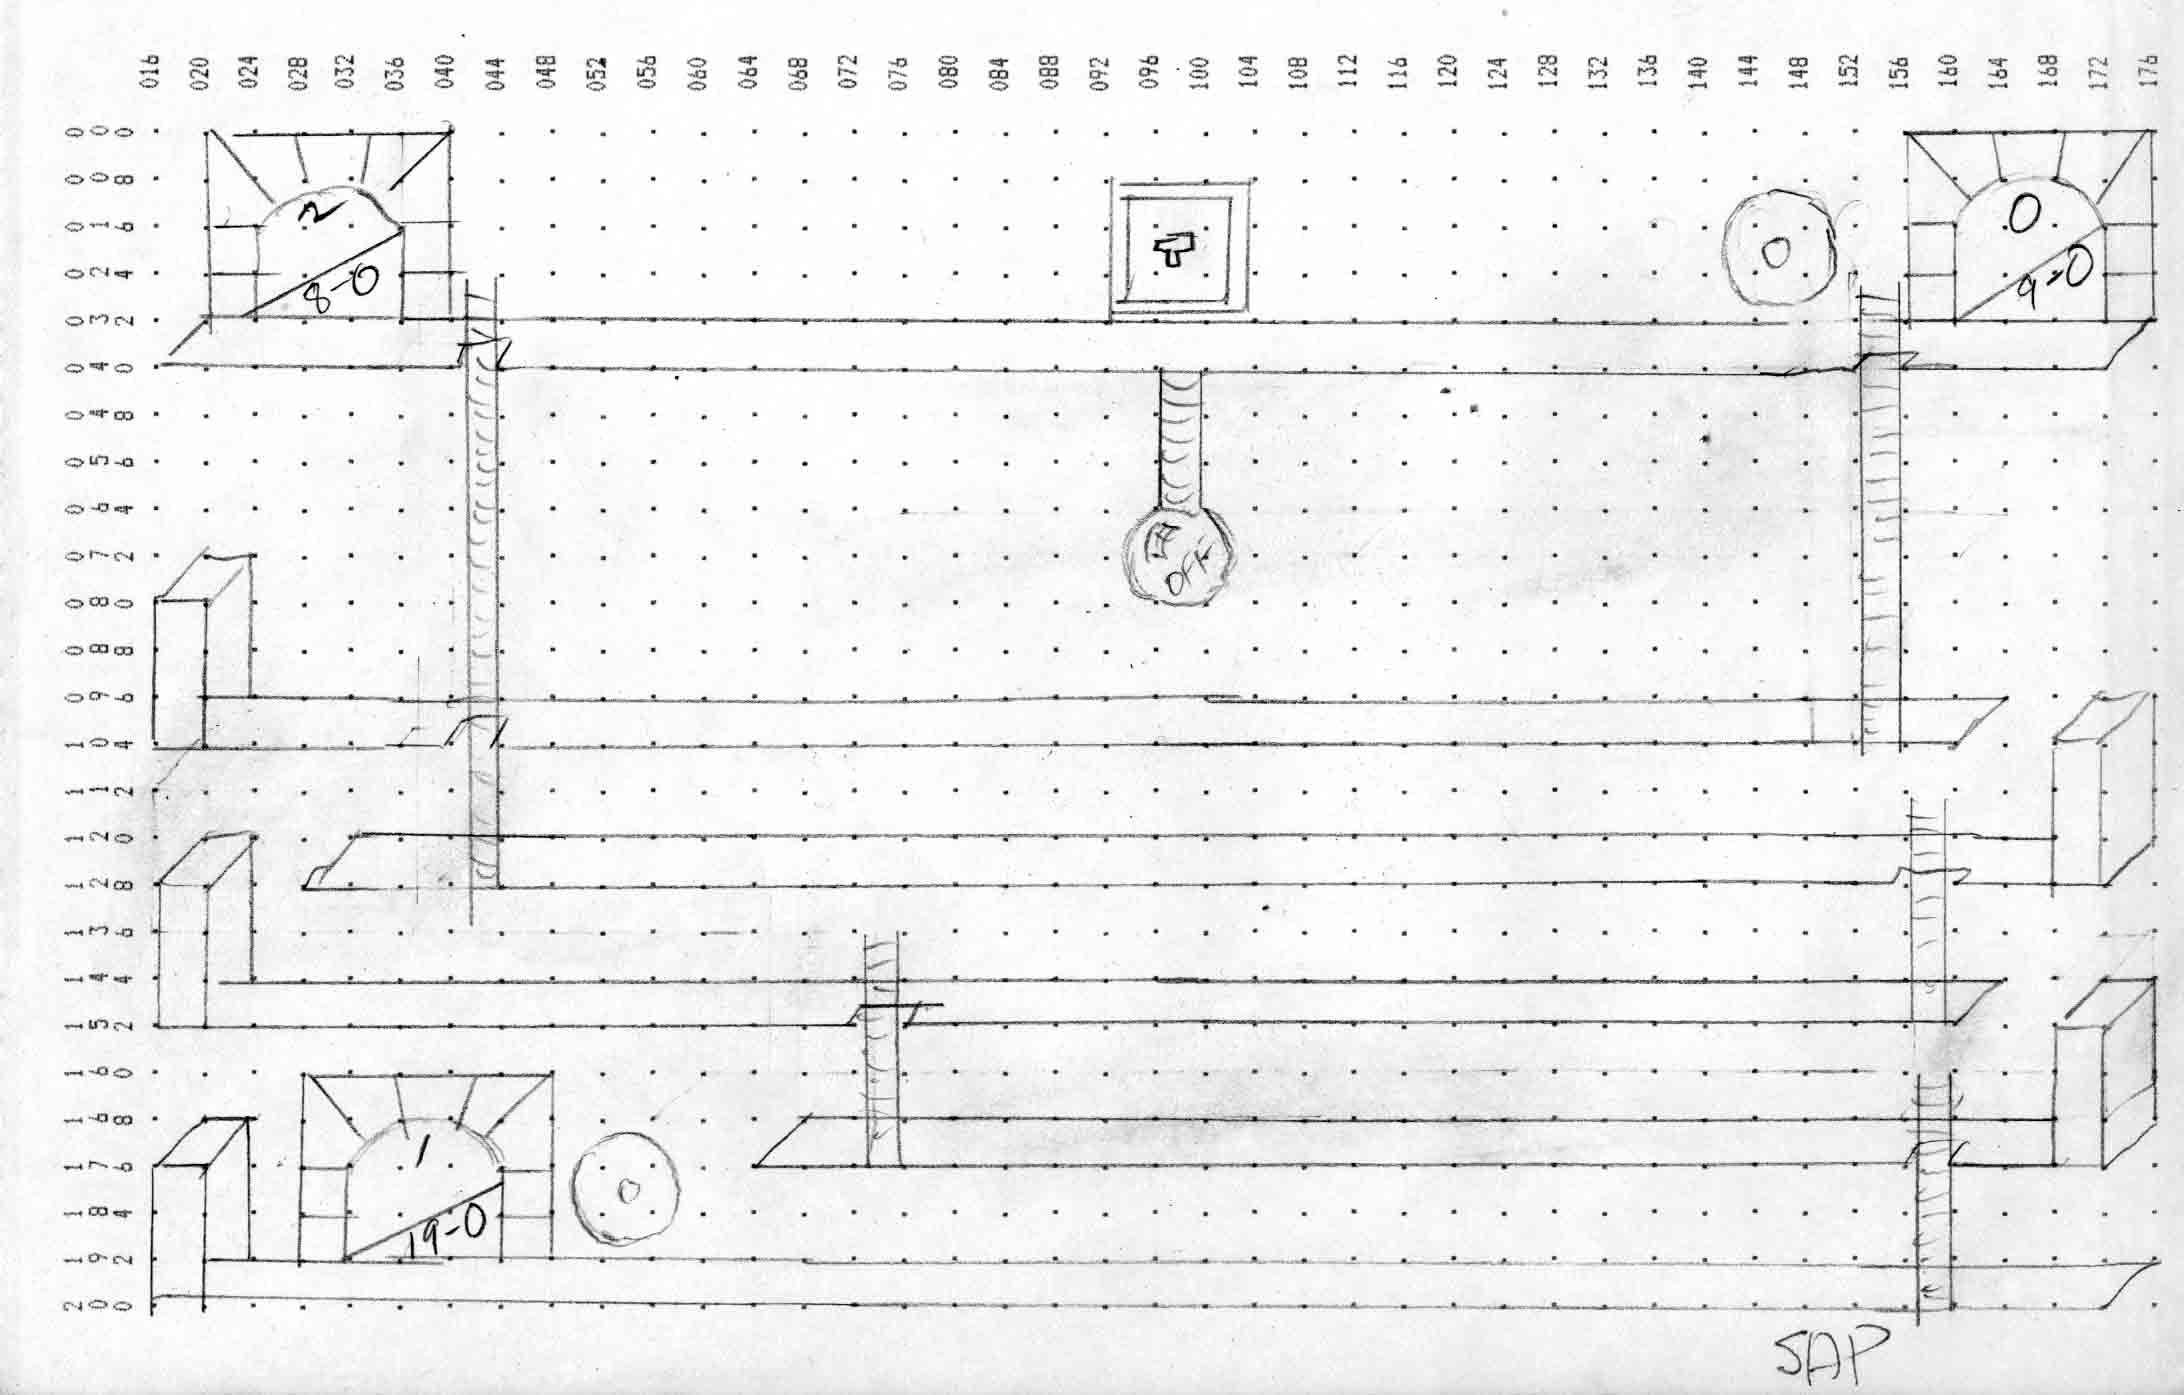 016 020 024 028 032 036 040 044 048 052 056 060 064 068 072 076 080 084 088 092 096 100 104 108 112 116 120 124 128 132 136 140 144 148 152 156 160 164 168 172 176
000
008
2
0
016
024
8-0
9-0
032
040
048
056
064
072
OFF
080
088
096
104
112
120
128
136
144
152
160
168
1
176
184
19-0
192
200
SAP